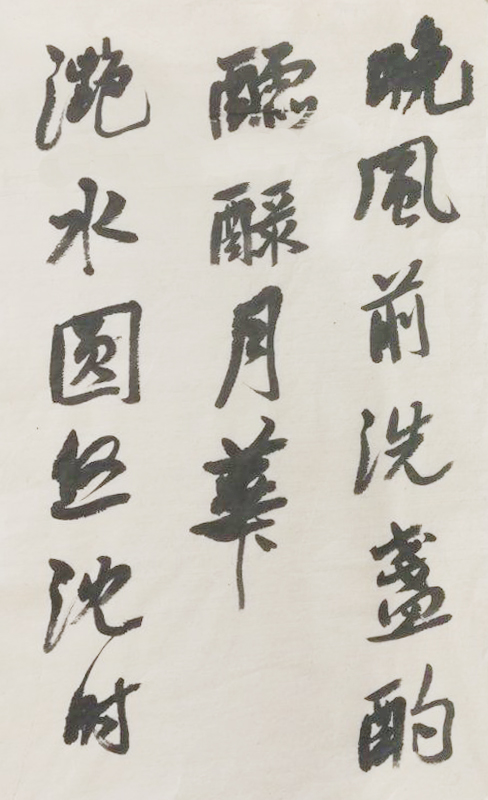 晚風前洗盞酌
醽醁月華
灔水圆忽沈时